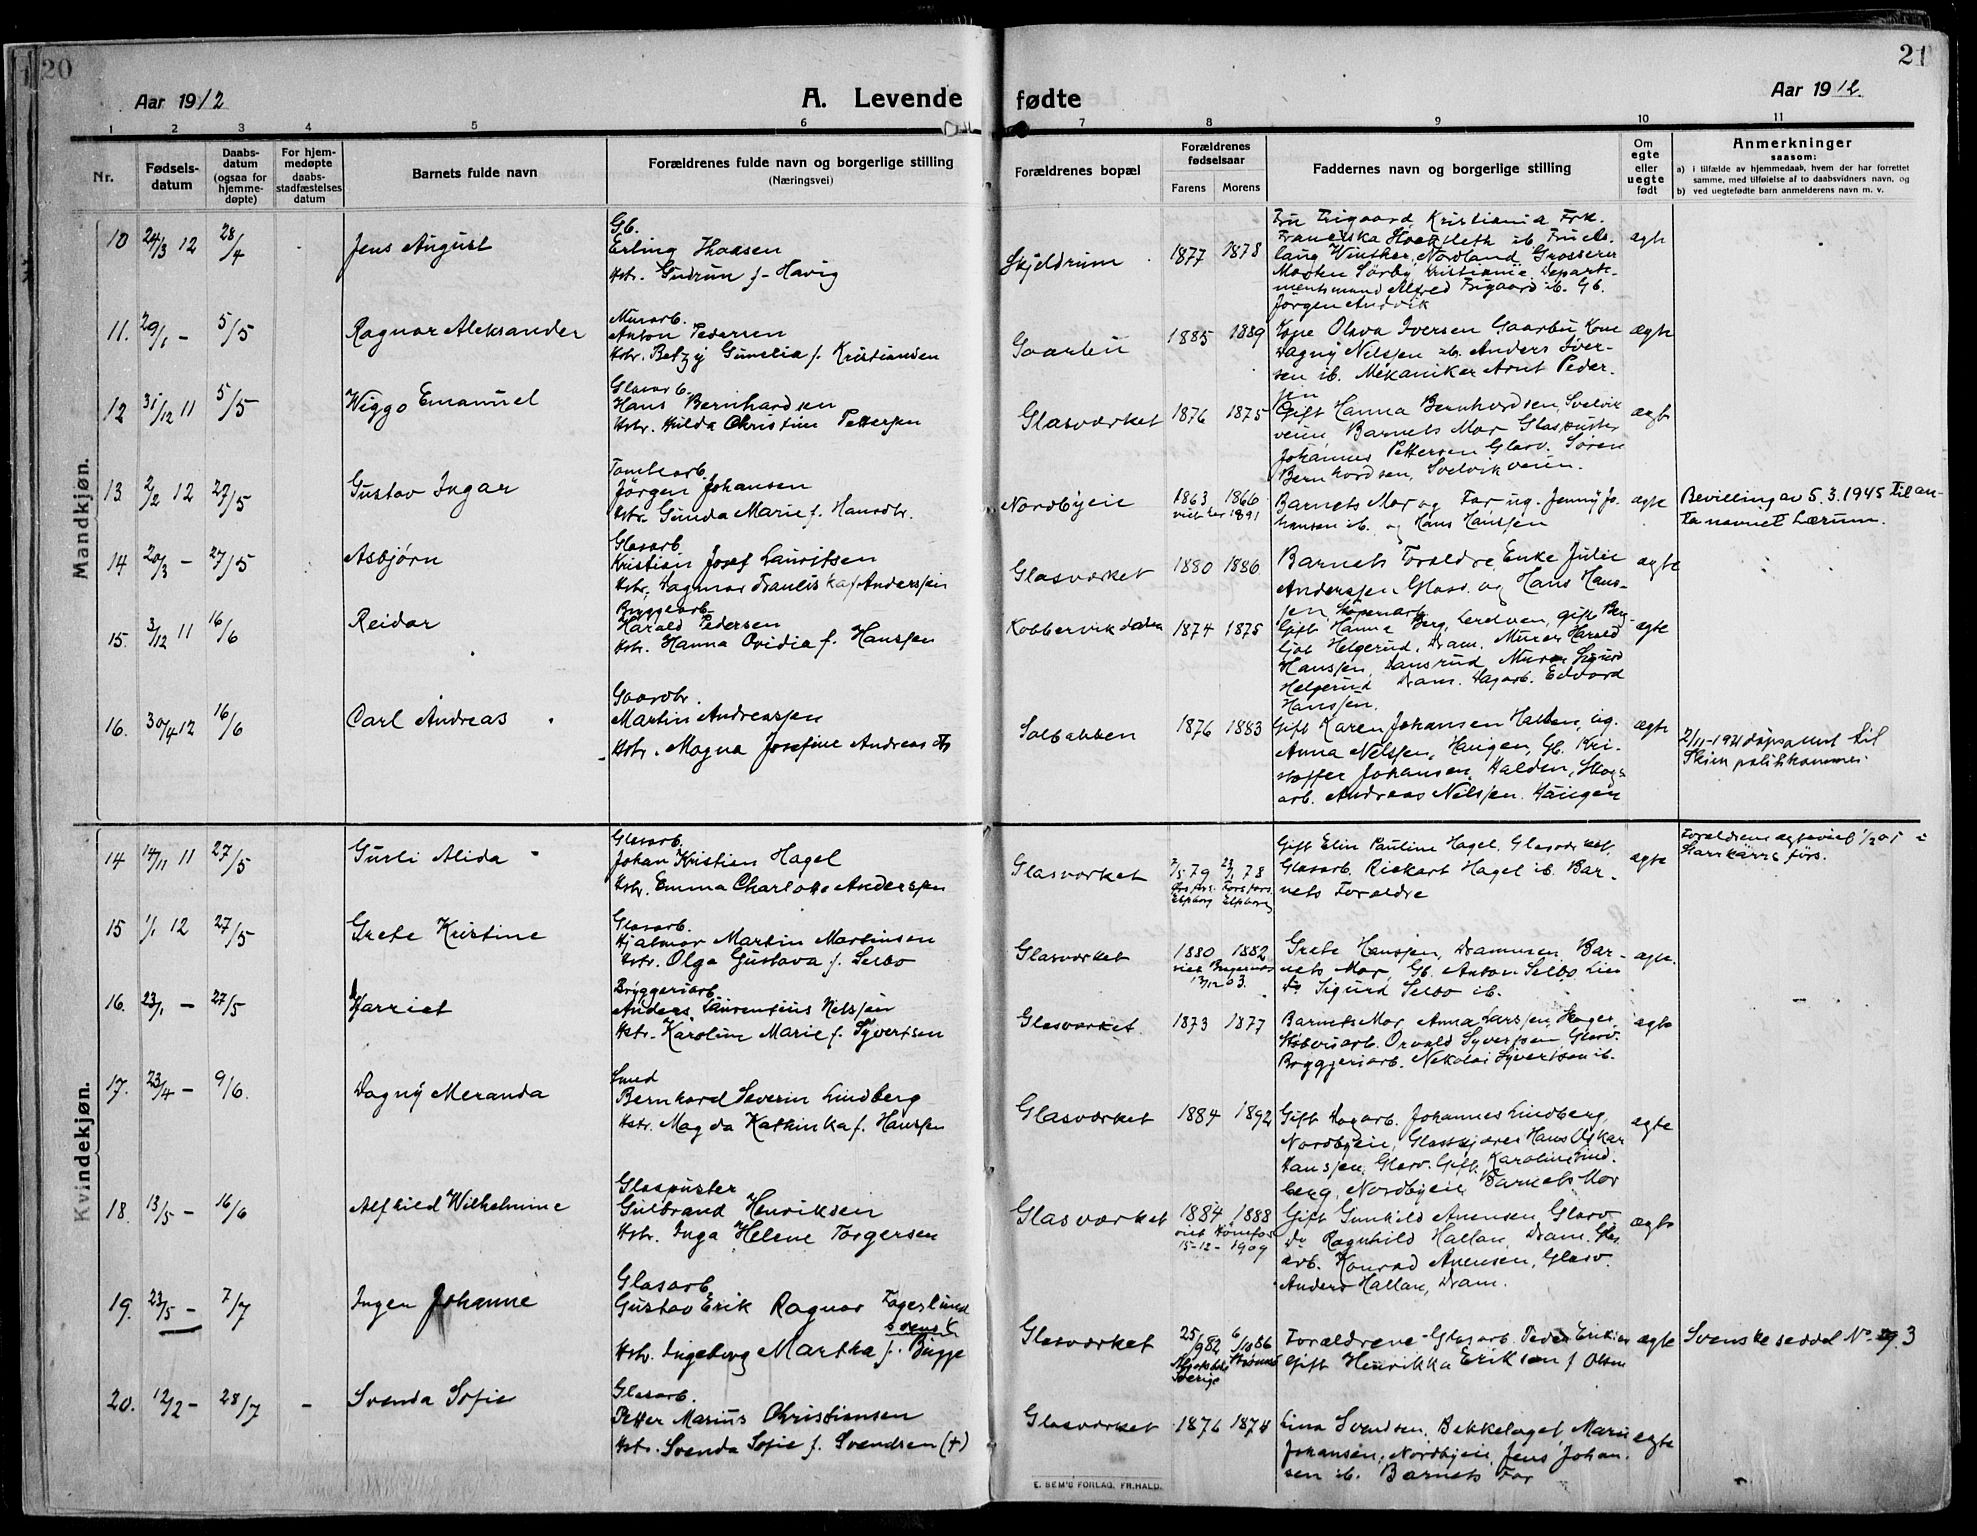 20
21
Aar 1912
A. Levende
fødte
Aar 1912
1 2 3 4 5 6
7 8 9 10 11
Nr.
Fødsels-
datum
Daabs-
datum
(ogsaa for
hjemme-
døpte)
For hjem-
medøpte
daabs-
stadfæstelses
datum
Barnets fulde navn
Forældrenes fulde navn og borgerlige stilling
(Næringsvei)
Forældrenes bopæl
Forældrenes
fødselsaar
Farens Morens
Faddernes navn og borgerlige stilling
Om
egte
eller
uegte
født
Anmerkninger
saasom:
a) i tilfælde av hjemmedaab, hvem der har forrettet
samme, med tilføielse af to daabsvidners navn, og
b) ved uegtefødte barn anmelderens navn m. v.
Mandkjøn.
10 24/3 12 28/4 - Jens August
Gb.
Erling Thaasen
Hstr. Gudrun f. Havig
Skjeldrum 1877 1878
Kristiania Frk.
Winther, Nordland Grosserer
Jörgen Andvik
ægte
11. 29/1 - 5/5 Ragnar Aleksander
Murarb.
Anton Pedersen
Hstr. Betzy Gunelia f. Kristiansen
Gaarbu 1885 1889
Kone Olava Iversen Gaarbu Kone
Dagny Nilsjen ib. Anders Iver-
sen ib. Mekaniker Arnt Peder-
sen
ægte
12 31/12 11 5/5 Wiggo Emanuel
Glasarb.
Hans Bernhardsen
Hstr. Hilda Christine Pettersen
Glasværket 1876 1875
Gift Hanna Bernhardsen, Svelvik
veien Barnets Mor Glaspuster
Johannes Pettersen Glasv. Søren
Bernhardsen, Svelvikveien.
ægte
13 2/2 12 27/5 Gustav Ingar
Tomtearb.
Jörgen Johansen
Hstr. Gunda Marie f. Hansdtr.
Nordbyeie 1863 1866
1891
Barnets Mor og Far ug. Jenny Jo-
hansen ib. og Hans Hansjen
ægte
Bevilling av 5.3.1945 til an-
ta navnet Lærum.
14 20/3 - 27/5 Asbjørn
Glasarb.
Kristian Josef Lauritsen
Hstr. Dagmar Andersjen
Glasværket 1880 1886
Barnets Foraldre Enke Julie
Andersjen Glasv. og Hans Hans-
jen
ægte
15. 3/12 11 16/6 Reidar
Bryggearb.
Harald Pedersen
Hstr. Hanna Ovidia f. Hansjen
Kobbervikdalen 1874 1875
Gift Hanna Berg, gift Berg-
ljot Helgerud, Dram. Murer Harald
Hansjen, Dansrud, Murer Sigurd
Helgerud Dram. Dagarb. Edvard
Hansjen.
ægte
16. 30/4 12 16/6 Carl Andreas
Gaardbr.
Martin Andreasjen
Hstr. Magna Josefine Andreasdtr
Solbakken 1876 1883
Gift Karen Johansen Halden, ug.
Anna Nilsjen, Haugen, Gb. Kri-
stoffer Johansen, Halden, Skogs-
arb. Andreas Nilsjen. Haugen
ægte
2/11-1921 döpsattest til
Skien politikammer.
Kvindekjøn.
14 14/11 11 27/5 Gurli Alida
Glasarb.
Johan Kristian Hagel
Hstr. Emma Charlotte Andersjen
Glasværket 79 78
Gift Elin Pauline Hagel, Glasværket,
Glasarb. Rickart Hagel ib. Bar-
nets Foraldre
ægte
Foraldrene
15 1/1 12 27/5 Grete Kristine
Glasarb.
Hjalmar Martin Martinsen
Hstr. Olga Gustava f. Selbo
Glasværket 1880 1882
viet Bragernæs
13/12 03.
Grete Hansjen, Drammen, Bar-
nets Mor, Gb. Anton Selbo Lier
Do Sigurd Selbo ib.
ægte.
16. 23/1 - 27/5 Harriet
Bryggeriarb.
Anders Laurentius Nilsjen
Hstr. Karoline Marie f. Syvertsen
Glasværket. 1873 1877
Barnets Mor, Anna Larsjen, Skoger,
Støberiarb. Orvald Syvertsen, Glasv.
Bryggeriarb. Nikolai Syvertsen ib.
ægte
17. 23/4 - 9/6. Dagny Meranda
Smed
Bernhard Severin Lindberg
Hstr. Magda Kathinka f. Hansjen
Glasværket 1884 1892
Gift Dagarb. Johannes Lindberg,
Nordbyeie, Glasskjærer Hans Oskar
Hansjen, Glasv. Gift Karoline Lind-
berg, Nordbyeie, Barnets Mor
ægte
18. 13/5 - 16/6 Alfhild Wilhelmine
Glaspuster
Gulbrand Henriksen
Hstr. Inga Helene Torgersen
Glasværket 1884 1888
viet Hönefos
15-12-1909
Gift Gunhild Anensen Glasv.
Do Ragnhild Hallan, Dram. Glas-
arb. Konrad Anensen, Glasv.
Anders Hallan, Dram.
ægte
19. 23/5 - 7/7 Inger Johanne
Glasarb.
Gustav Erik Ragnar Fagerlund
svensk
Hstr. Ingeborg Martha f. Bugge
Glasværket 25/9 82 6/10 86
Sverige Strömsö
Forældrene - Glasarb. Peder Eriksen
Gift Henrikka Eriksen f. Olsen
ægte
Svenske seddel No. 3
20. 12/2 - 28/7 - Svenda Sofie
Glasarb.
Petter Marius Christiansen
Hstr. Svenda Sofie f. Svendsen (+)
Glasværket 1876 1874
Lina Svendsen, Bekkelaget, Marie
Johansen, Nordbyeie, Jens Johan-
sen ib. Barnets Far
ægte
E. SEM'S FORLAG, FR.HALD.